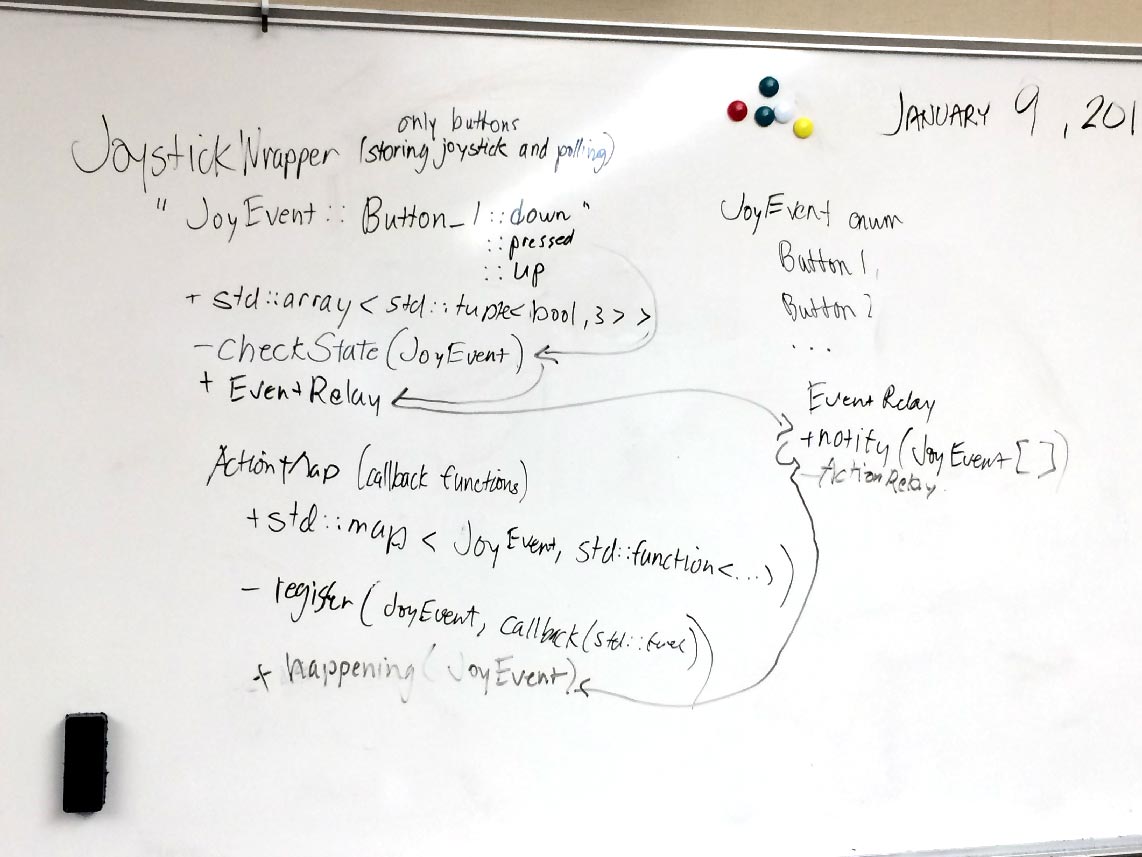 JANUARY 9, 201
only buttons
JoystickWrapper (storing joystick and polling)
" JoyEvent :: Button_1 :: down "
:: pressed
:: up
+ std::array < std::tuple< bool, 3 > >
- checkState (JoyEvent)
+ EventRelay
ActionMap (callback functions)
+ std::map < JoyEvent, std::function<...> )
- register ( JoyEvent, callback (std::func) )
+ happening ( JoyEvent )
JoyEvent enum
Button 1,
Button 2
...
EventRelay
+ notify (JoyEvent [ ] )
- ActionRelay.